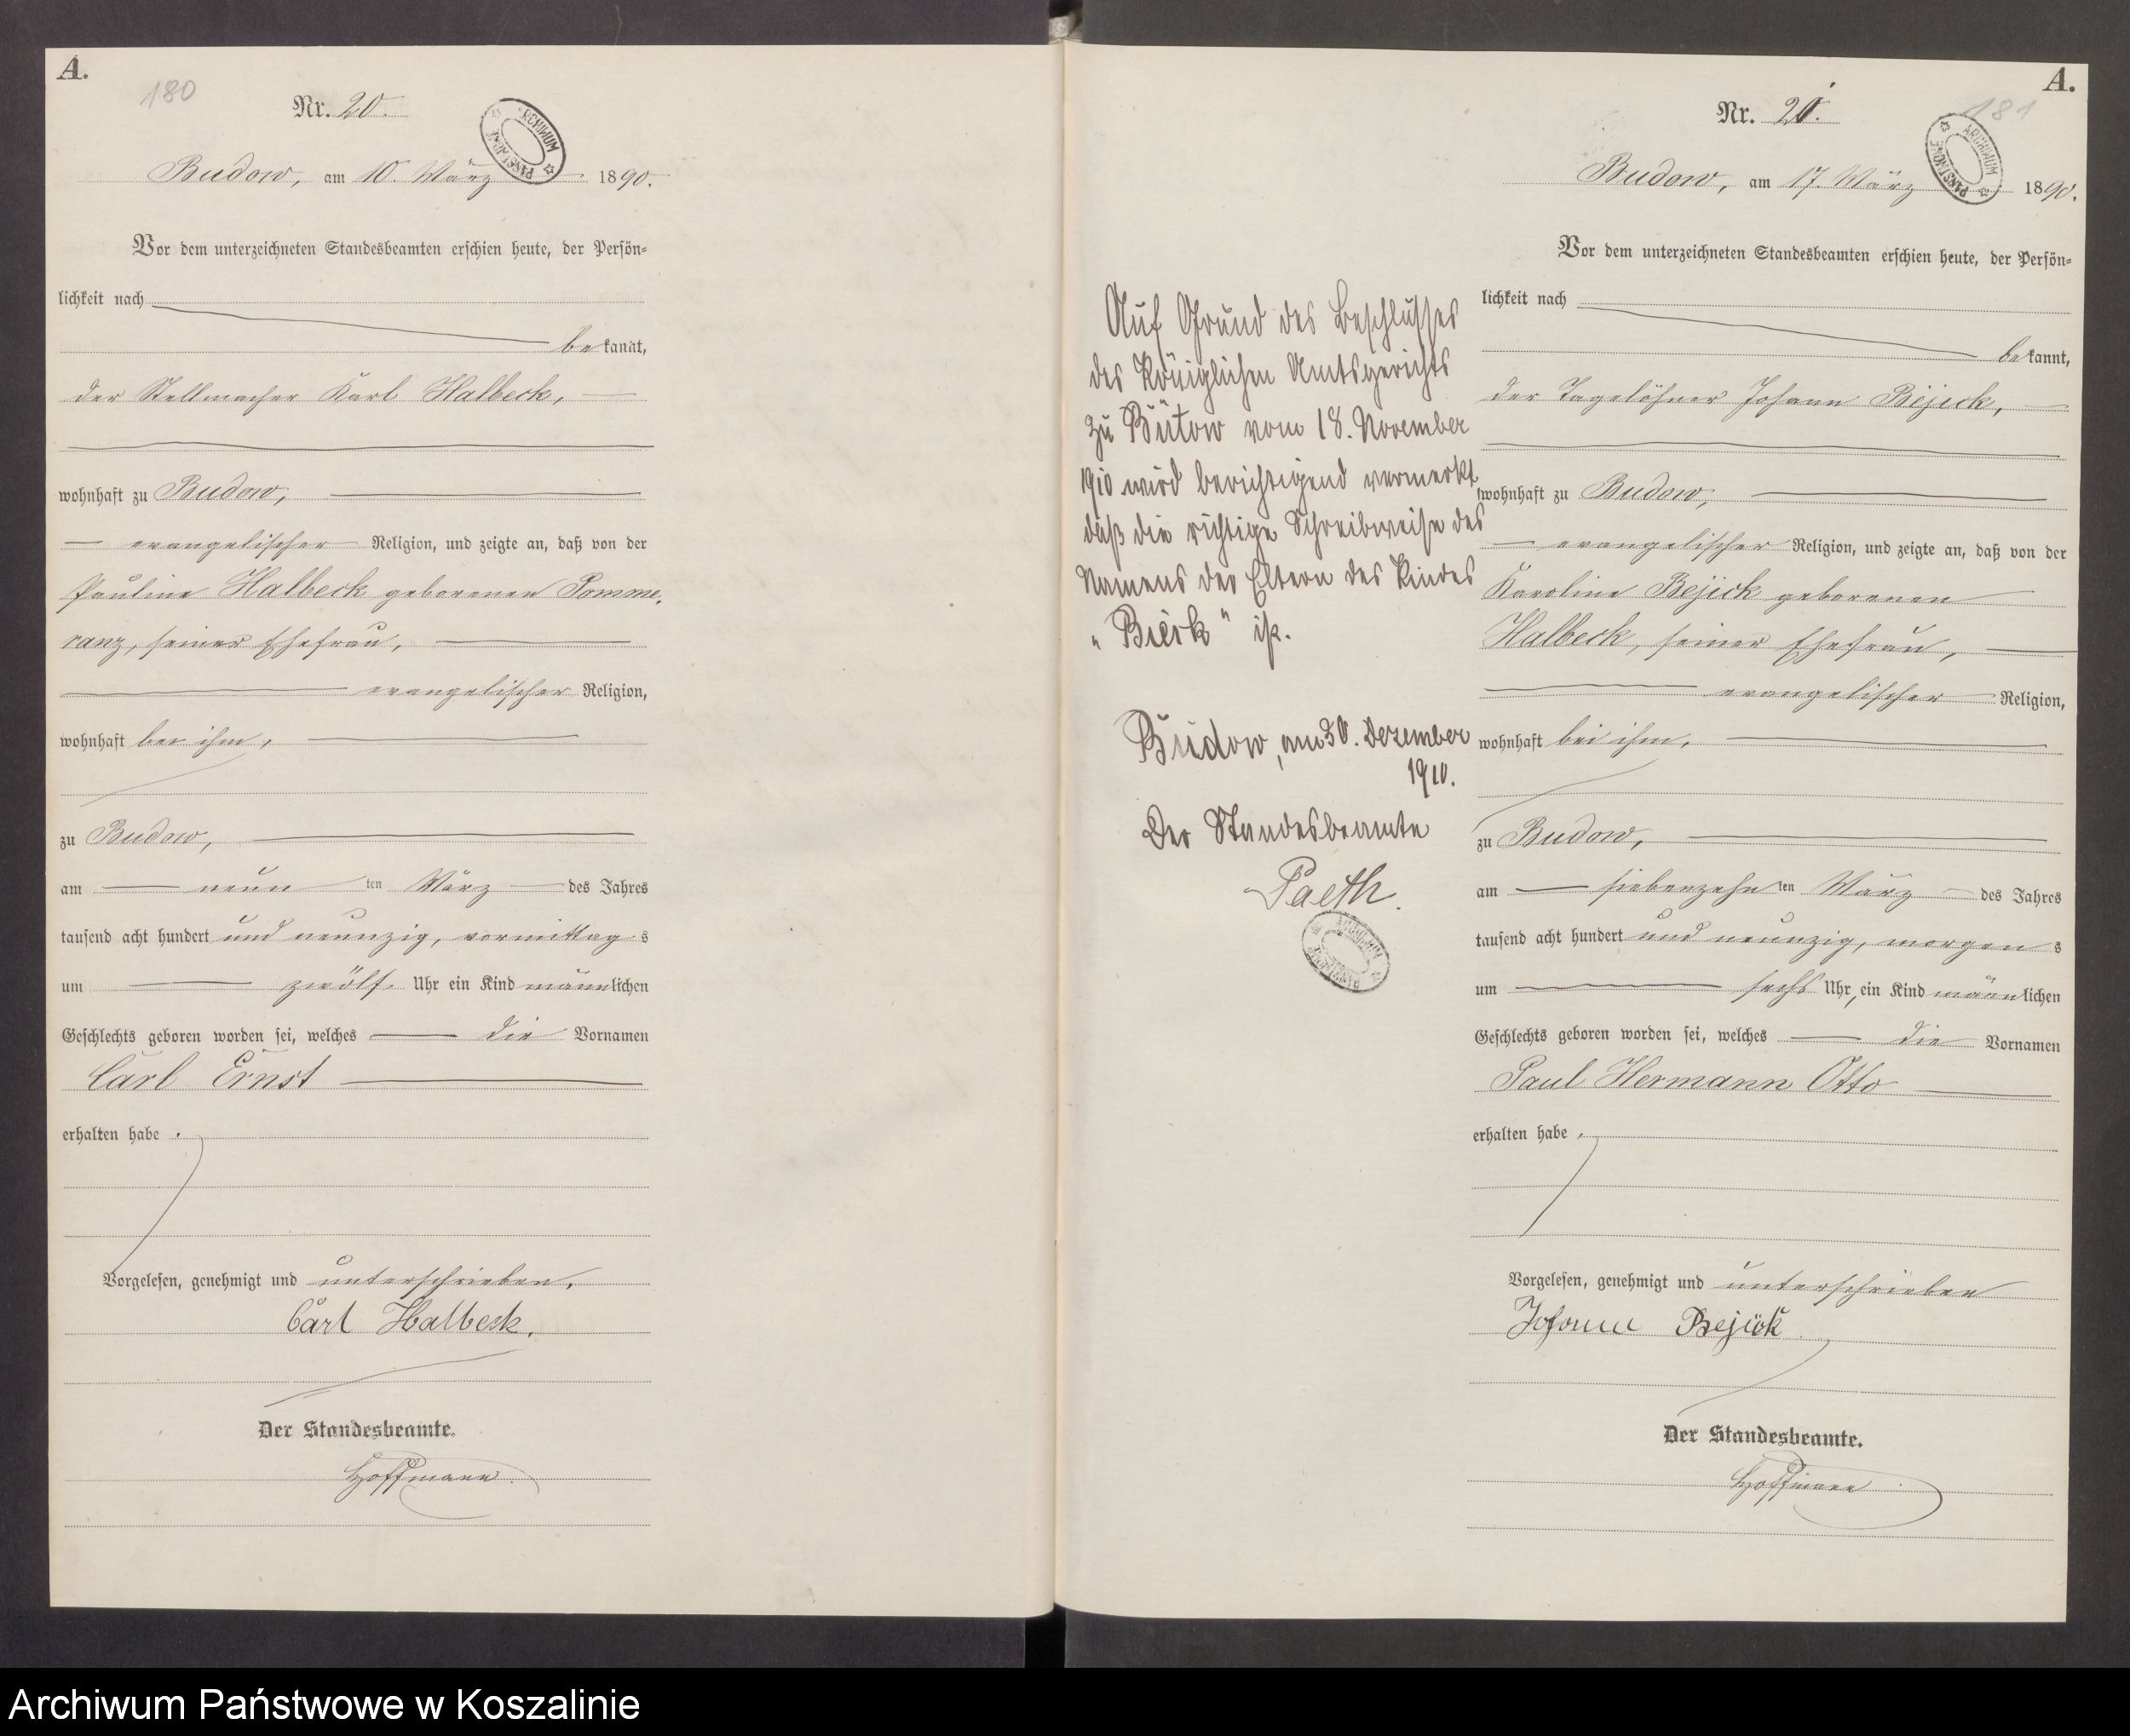 A.
180
Nr. 20.
ARCHIWUM PAŃSTWOWE
Budow, am 10. März 1890.
Vor dem unterzeichneten Standesbeamten erschien heute, der Persön-
lichkeit nach
bekannt,
der Stellmacher Karl Halbeck,
wohnhaft zu Budow,
evangelischer Religion, und zeigte an, daß von der
Pauline Halbeck geborenen Pomme-
ranz, seiner Ehefrau,
evangelischer Religion,
wohnhaft bei ihm,
zu Budow,
am neunten März des Jahres
tausend acht hundert und neunzig, vormittags
um zwölf Uhr ein Kind männlichen
Geschlechts geboren worden sei, welches die Vornamen
Carl Ernst
erhalten habe.
Vorgelesen, genehmigt und unterschrieben,
Carl Halbeck.
Der Standesbeamte.
Hoffmann.
A.
181
Nr. 21.
ARCHIWUM PAŃSTWOWE
Budow, am 17. März 1890.
Vor dem unterzeichneten Standesbeamten erschien heute, der Persön-
lichkeit nach
bekannt,
der Tagelöhner Johann Bejick,
wohnhaft zu Budow,
evangelischer Religion, und zeigte an, daß von der
Karoline Bejick geborenen
Halbeck, seiner Ehefrau,
evangelischer Religion,
wohnhaft bei ihm,
zu Budow,
am siebenzehnten März des Jahres
tausend acht hundert und neunzig, morgens
um sechs Uhr, ein Kind männlichen
Geschlechts geboren worden sei, welches die Vornamen
Paul Hermann Otto
erhalten habe.
Vorgelesen, genehmigt und unterschrieben
Johann Bejick
Der Standesbeamte.
Hoffmann
Auf Grund des Beschlusses
des Königlichen Amtsgerichts
zu Bütow vom 18. November
1910 wird berichtigend vermerkt,
daß die richtige Schreibweise des
Namens der Eltern des Kindes
"Bieik" ist.
Budow, am 30. Dezember
1910.
Der Standesbeamte
Paeth.
ARCHIWUM PAŃSTWOWE
Archiwum Państwowe w Koszalinie